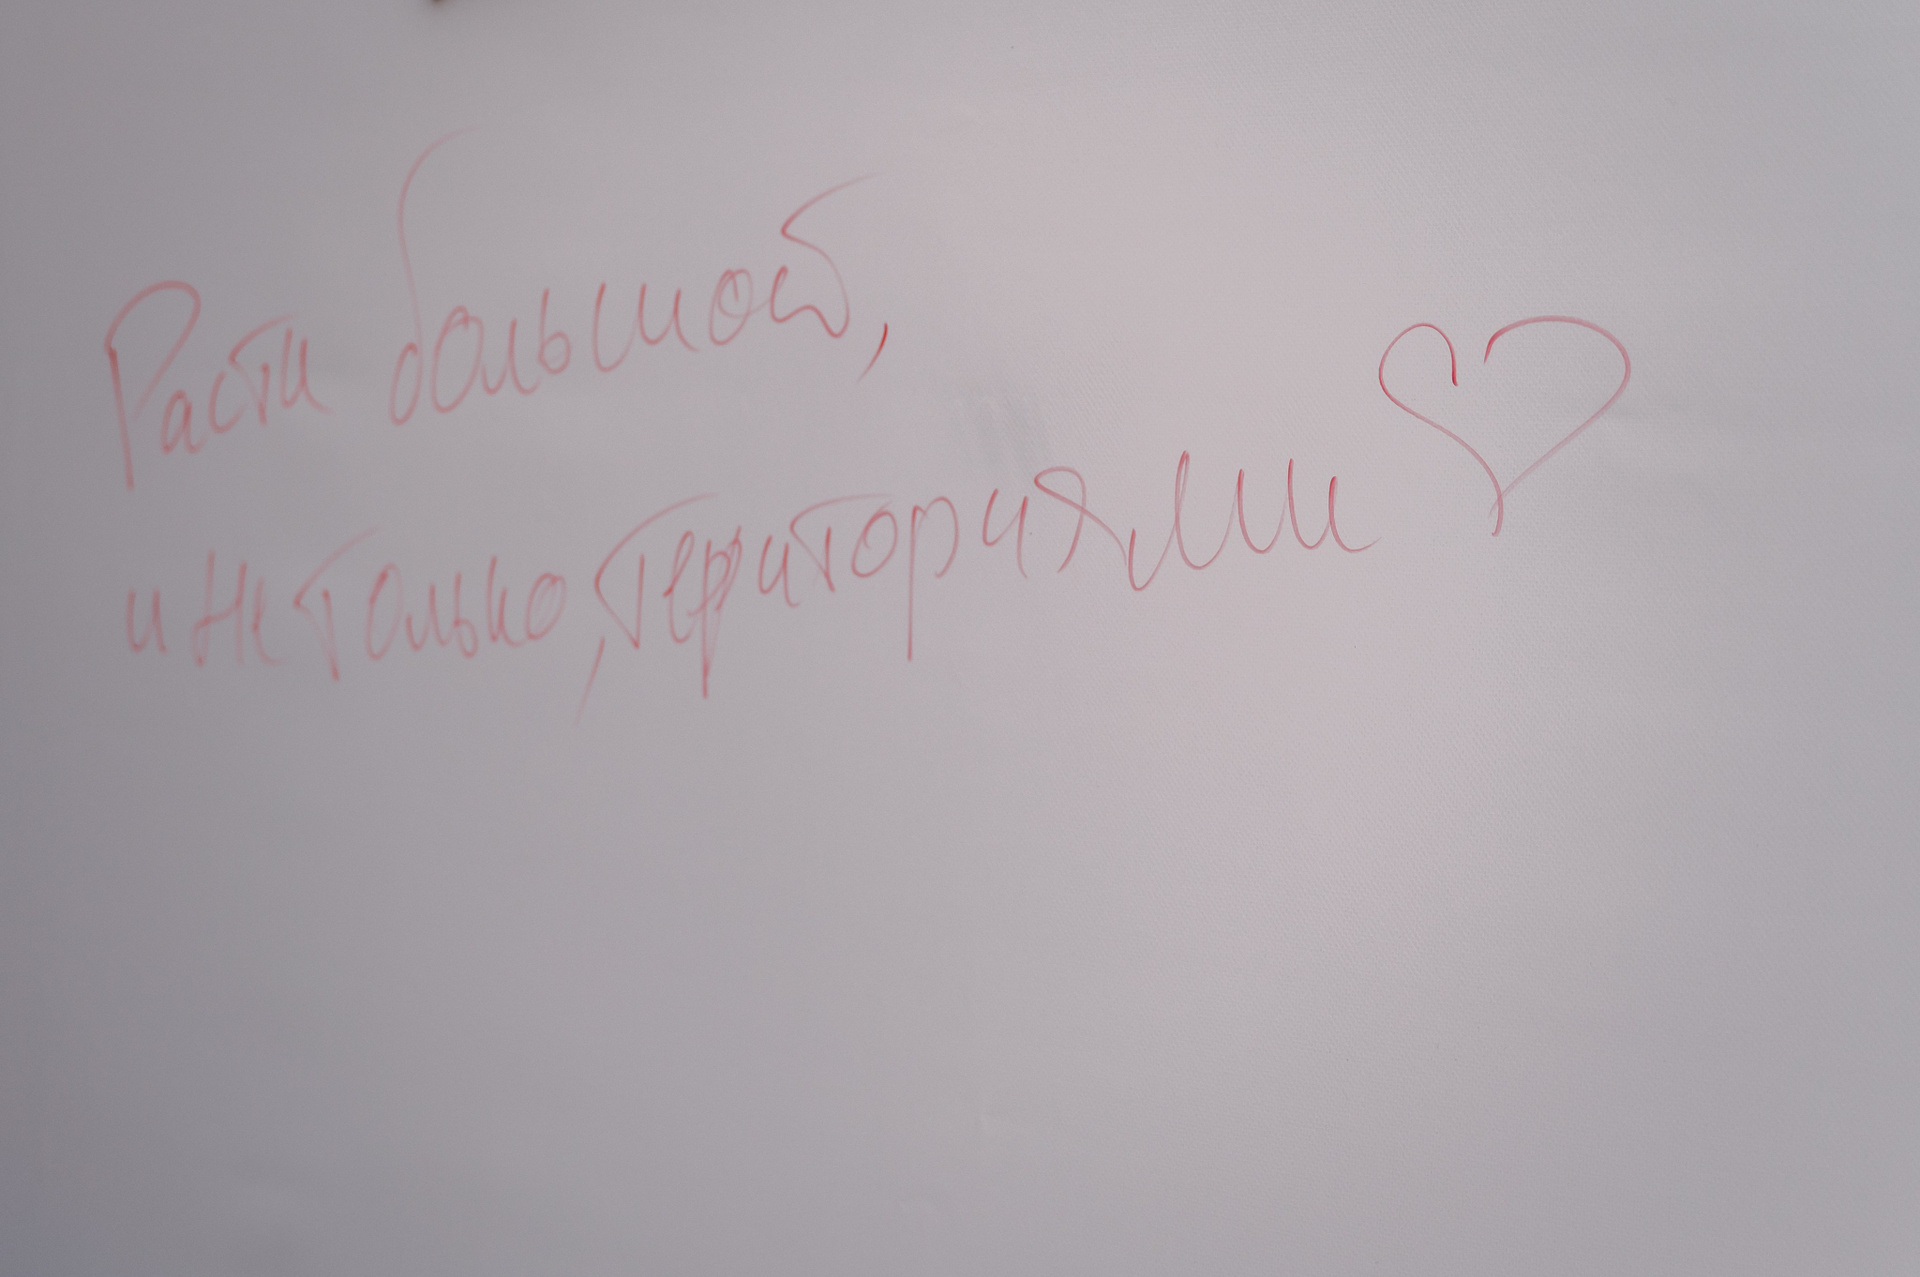 Расти большой,
и не только, териториями